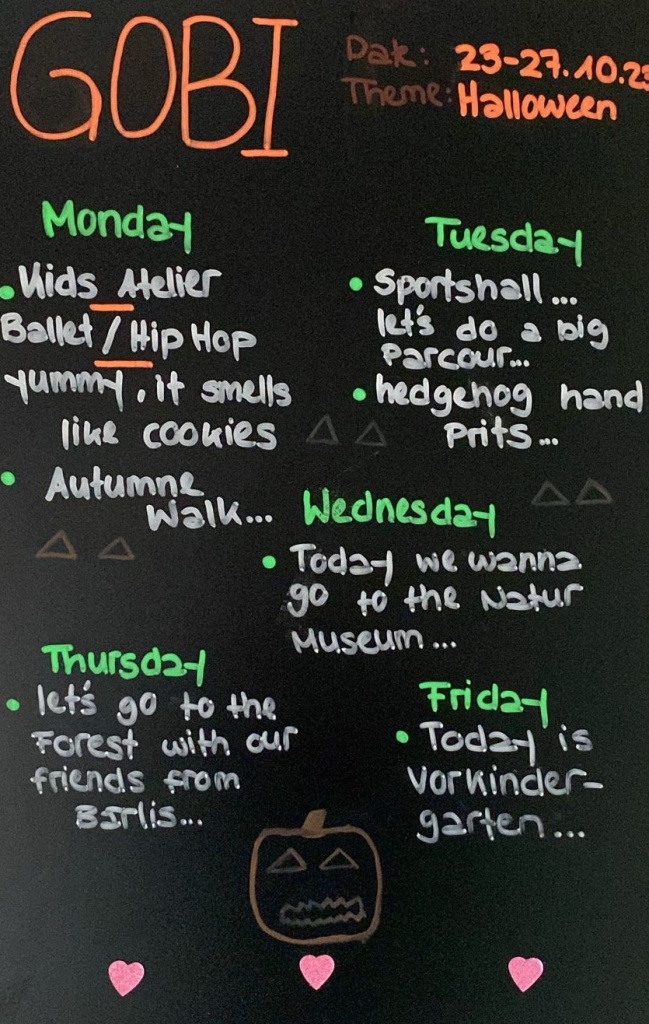 GOBI
Date: 23-27.10.23
Theme: Halloween
Monday
• Kids Atelier
Ballet / Hip Hop
yummy, it smells
like cookies
• Autumne
Walk...
Tuesday
• Sportshall...
let's do a big
Parcour...
• hedgehog hand
Prits...
Wednesday
• Today we wanna
go to the Natur
Museum...
Thursday
• let's go to the
Forest with our
friends from
Friday
• Today is
Vorkinder-
garten...